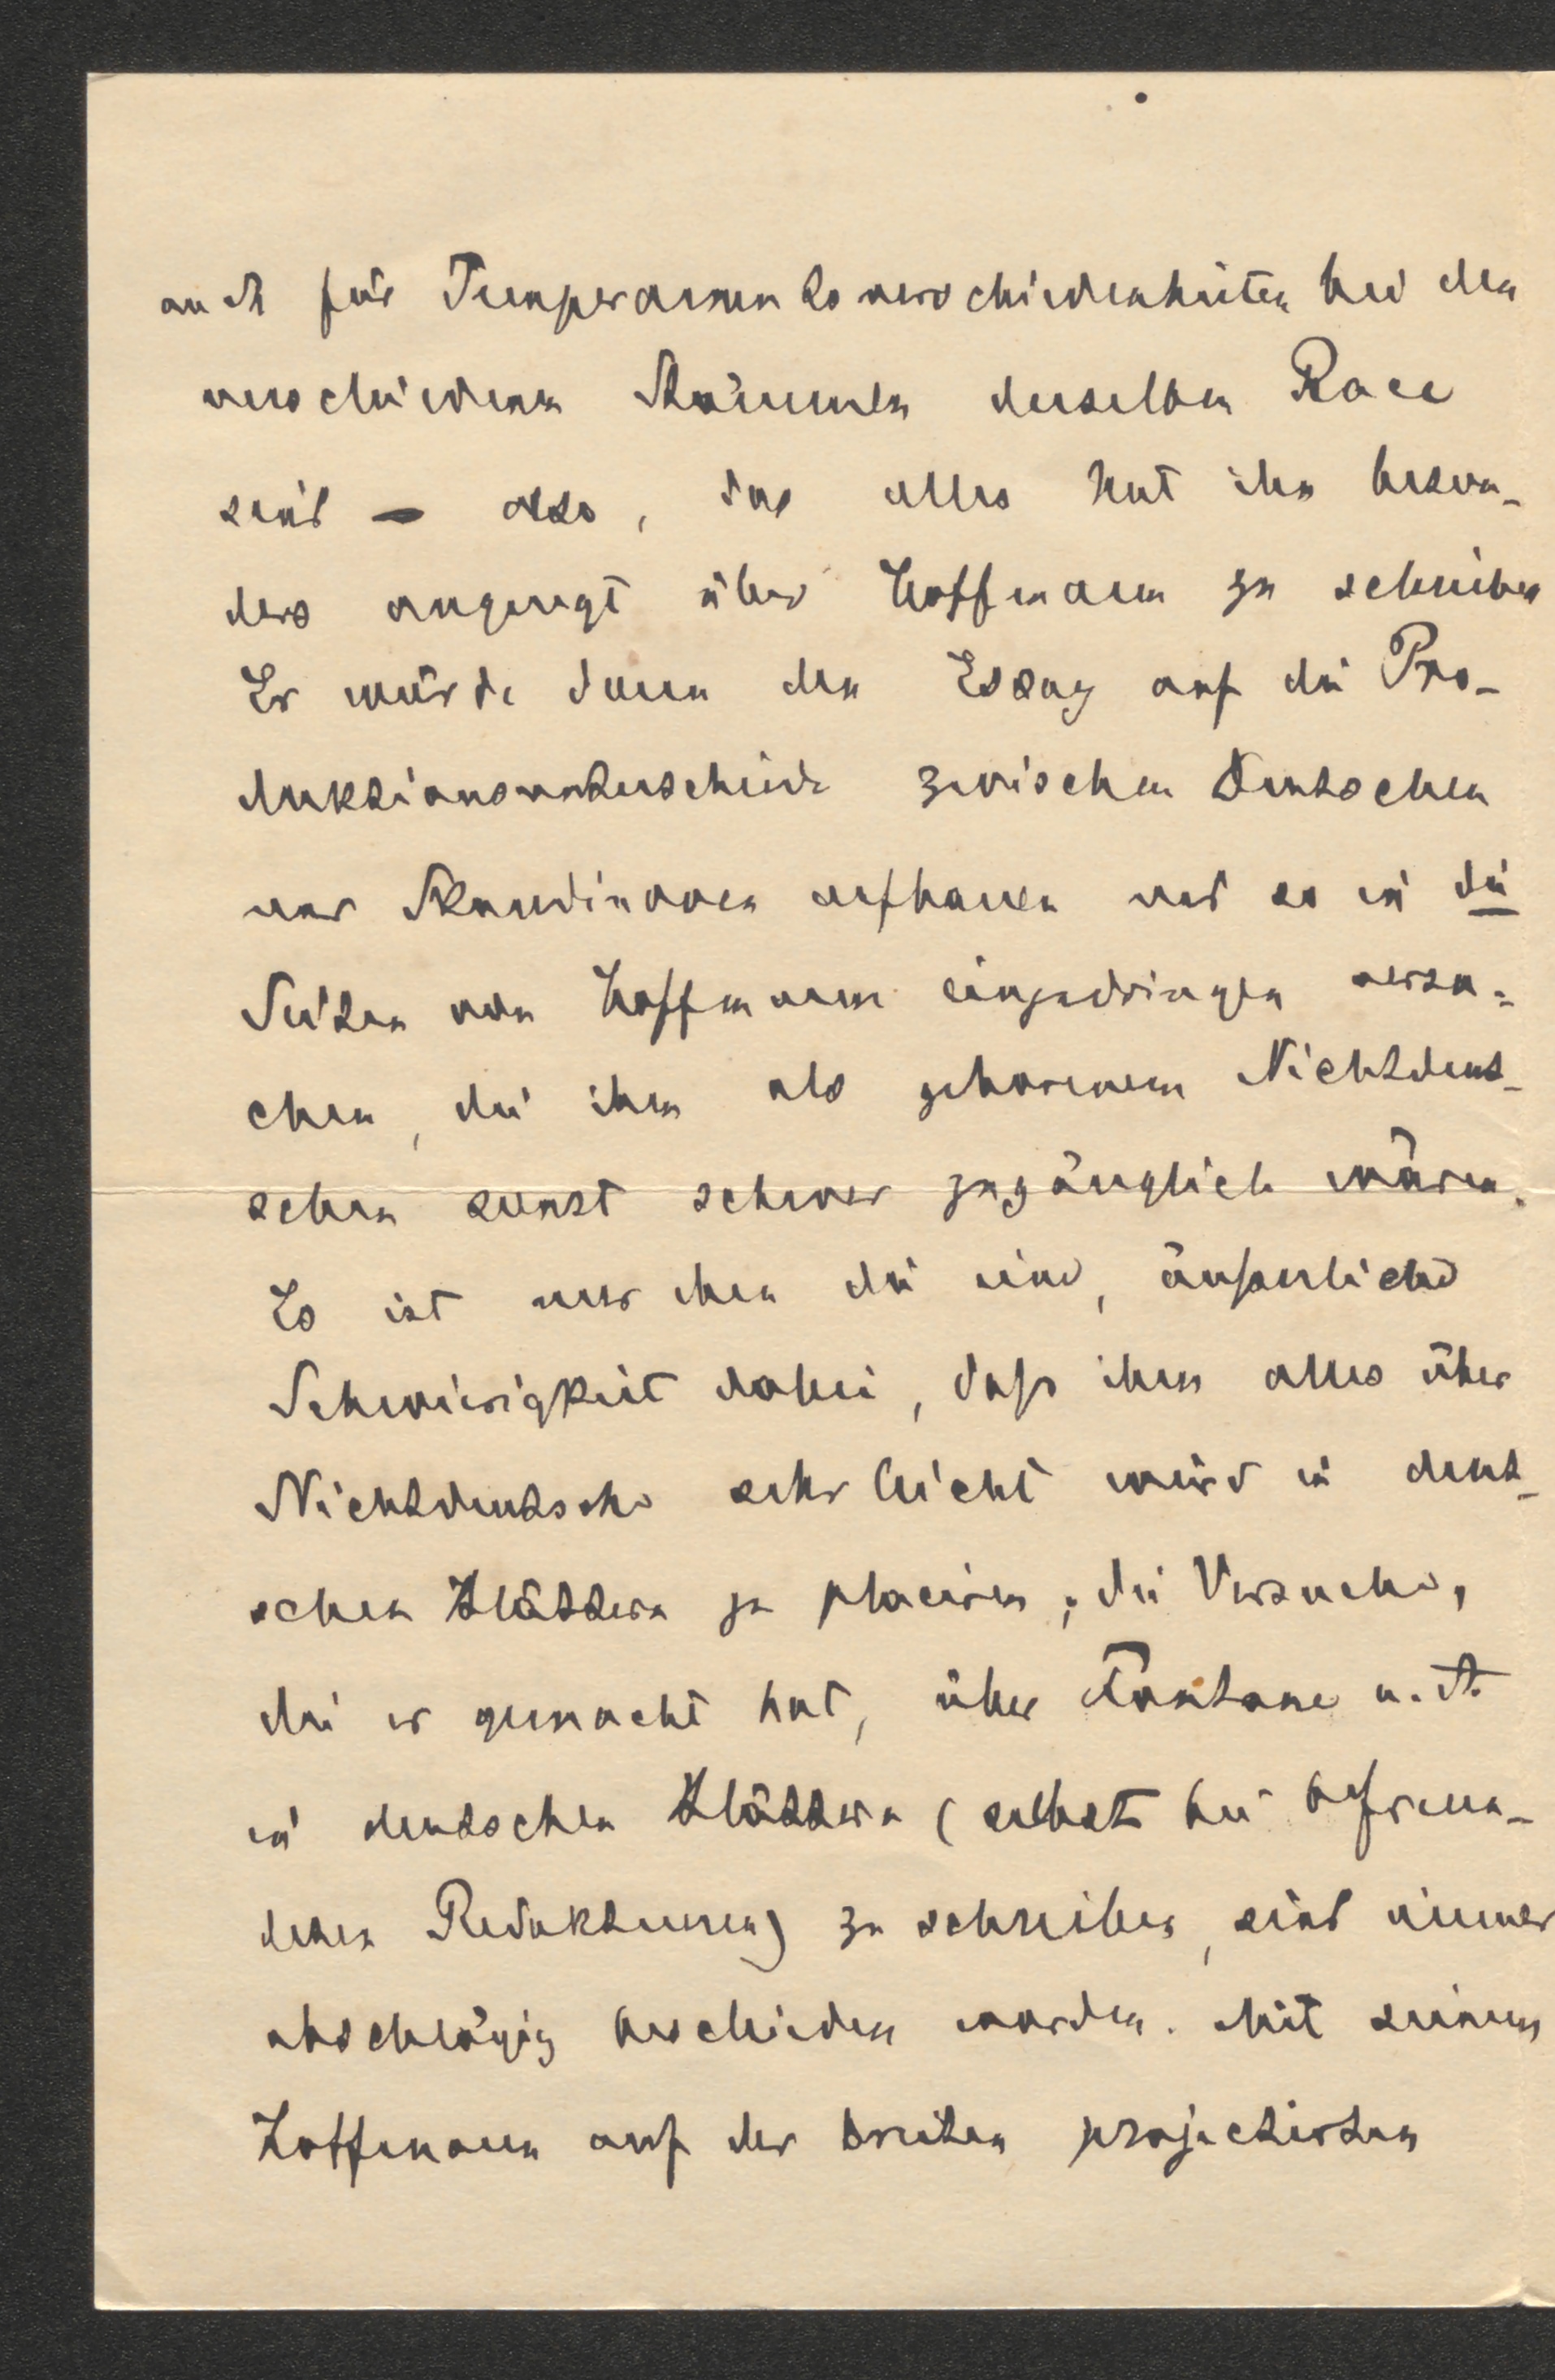 auch für Temperamentsverschiedenheiten bei den
verschiedenen Stämmen derselben Race
sind — also, das alles hat ihn beson-
ders angeregt über Hoffmann zu schreiben
Er würde dann den Essay auf die Pro-
duktionsunterschiede zwischen Deutschen
und Skandinaven aufbauen und so in die
Seiten von Hoffmann einzudringen versu-
chen, die ihm als geborenem Nichtdeut-
schen sonst schwer zugänglich wären.
Es ist nur eben die eine, äußerliche
Schwierigkeit dabei, daß ihm alles über
Nichtdeutsche sehr leicht wird in deut-
schen Blättern zu placiren; die Versuche,
die er gemacht hat, über Fontane u. A.
in deutschen Blättern (selbst bei befreun-
deten Redakteuren) zu schreiben, sind immer
abschlägig beschieden worden. Mit seinem
Hoffmann auf der breiten projectirten